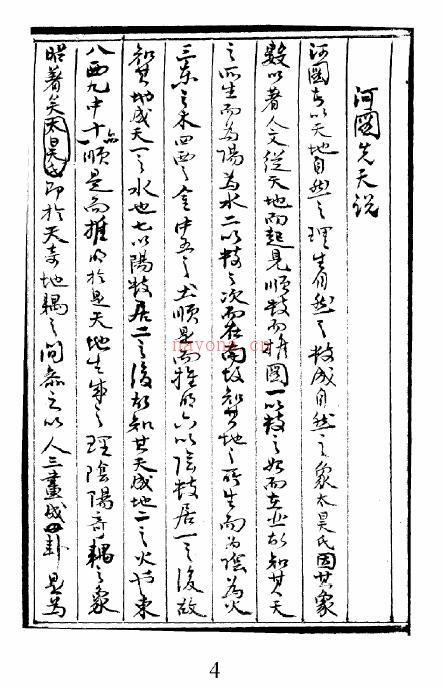 河圖先天説
河圖者以天地自然之理生自然之数成自然之象太昊氏因其象
数以著人文從天地而起見順数而推圖一以数之始而在北故知其天
之所生而為陽為水二以数之次而在南故知其地之所生而為陰為火
三東之木四西之金中五之土順是而推明六以陰数居一之後故
知其地成天一之水也七以陽数居二之後故知其天成地二之火也東
八西九中十亦順是而推明於是天地生成之理陰陽奇耦之象
昭著矣太昊氏即於天奇地耦之间参之以人三畫成卦是為
4